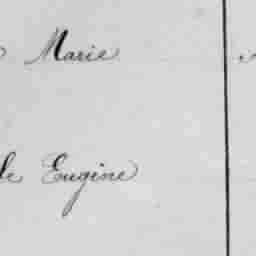 Marie
le Eugine